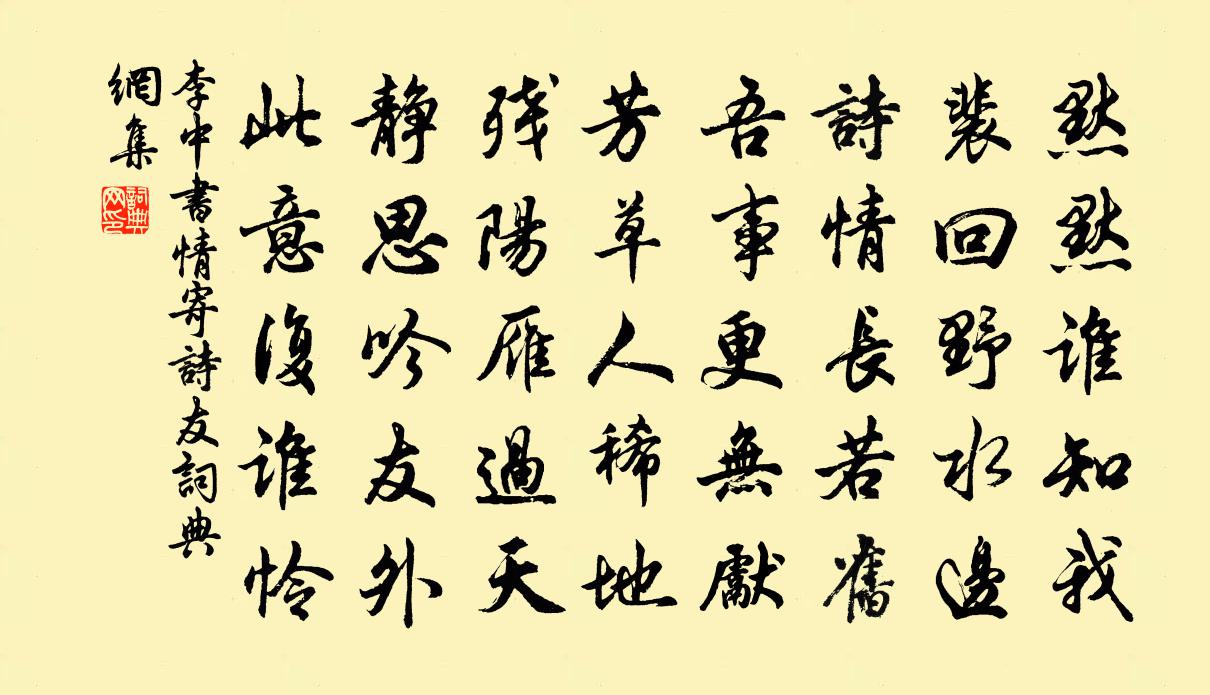 黙黙谁知我
裴回野水邊
詩情長若舊
吾事更無獻
芳草人稀地
残陽雁過天
静思吟友外
此意復谁怜
李中書情寄詩友詞典
網集
詞典网印